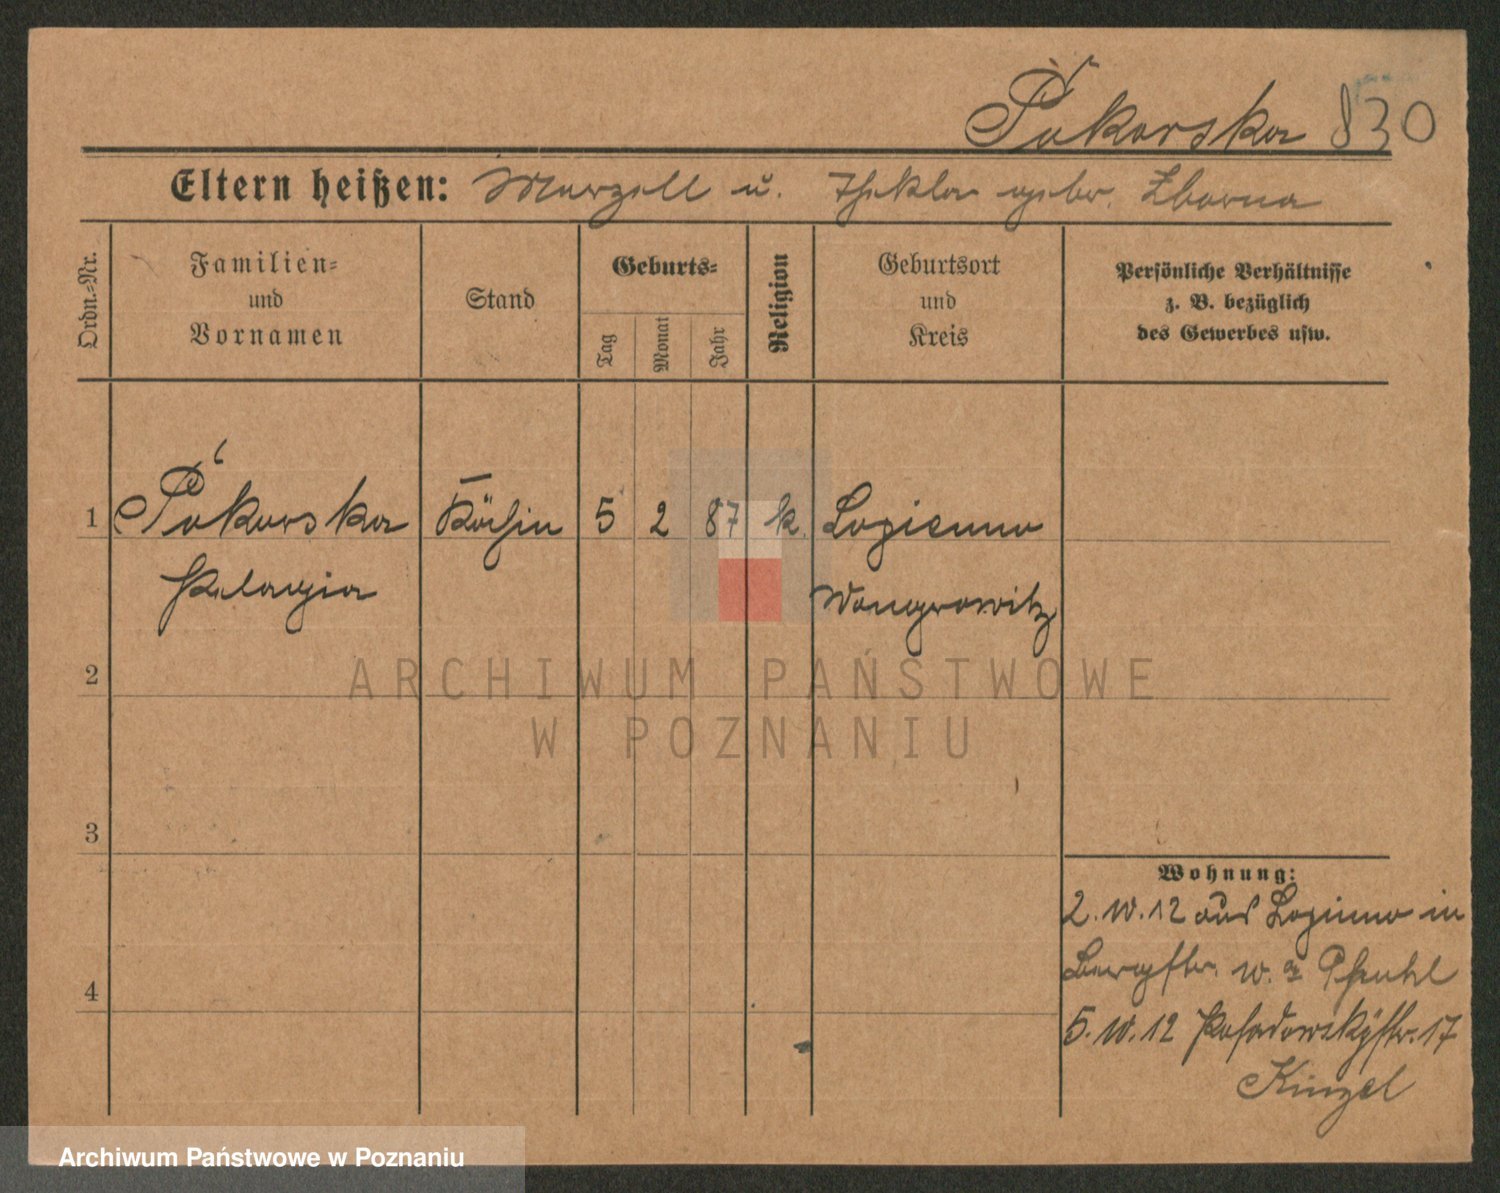 Pókorska 830
Eltern heißen: Marzell u. Thekla gebr. Zborna
Ordn.-Nr.
Familien-
und
Vornamen
Stand
Geburts-
Tag
Monat
Jahr
Religion
Geburtsort
und
Kreis
Persönliche Verhältnisse
z. B. bezüglich
des Gewerbes usw.
1 Pókorska Köchin 5 2 87 k. Loziemo
Pelagia Wongrowitz
2
3
4
Wohnung:
2. 10. 12 aus in
Bergstr. Pfuhl
5. 10. 12 Posadowskÿstr. 17
Kinzel
ARCHIWUM PAŃSTWOWE
W POZNANIU
Archiwum Państwowe w Poznaniu